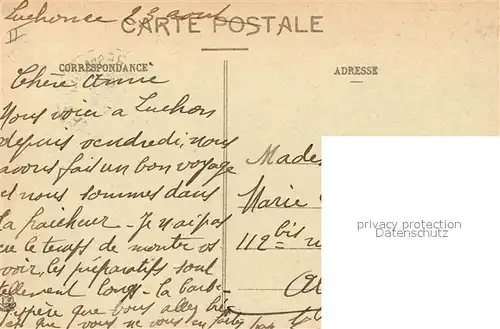 Luchonce 23 août
II
CARTE POSTALE
CORRESPONDANCE
ADRESSE
Chère Anne
Nous voici a Luchon
depuis vendredi, nous
avons fait un bon voyage
et nous sommes dans
la fraicheur - Je n'ai pas
eu le temps de monter vs
voir, les préparatifs sont
tellement longs - la
espère que vous allez
que vous ne vous
Mades
Marie
112 bis
privacy protection
Datenschutz